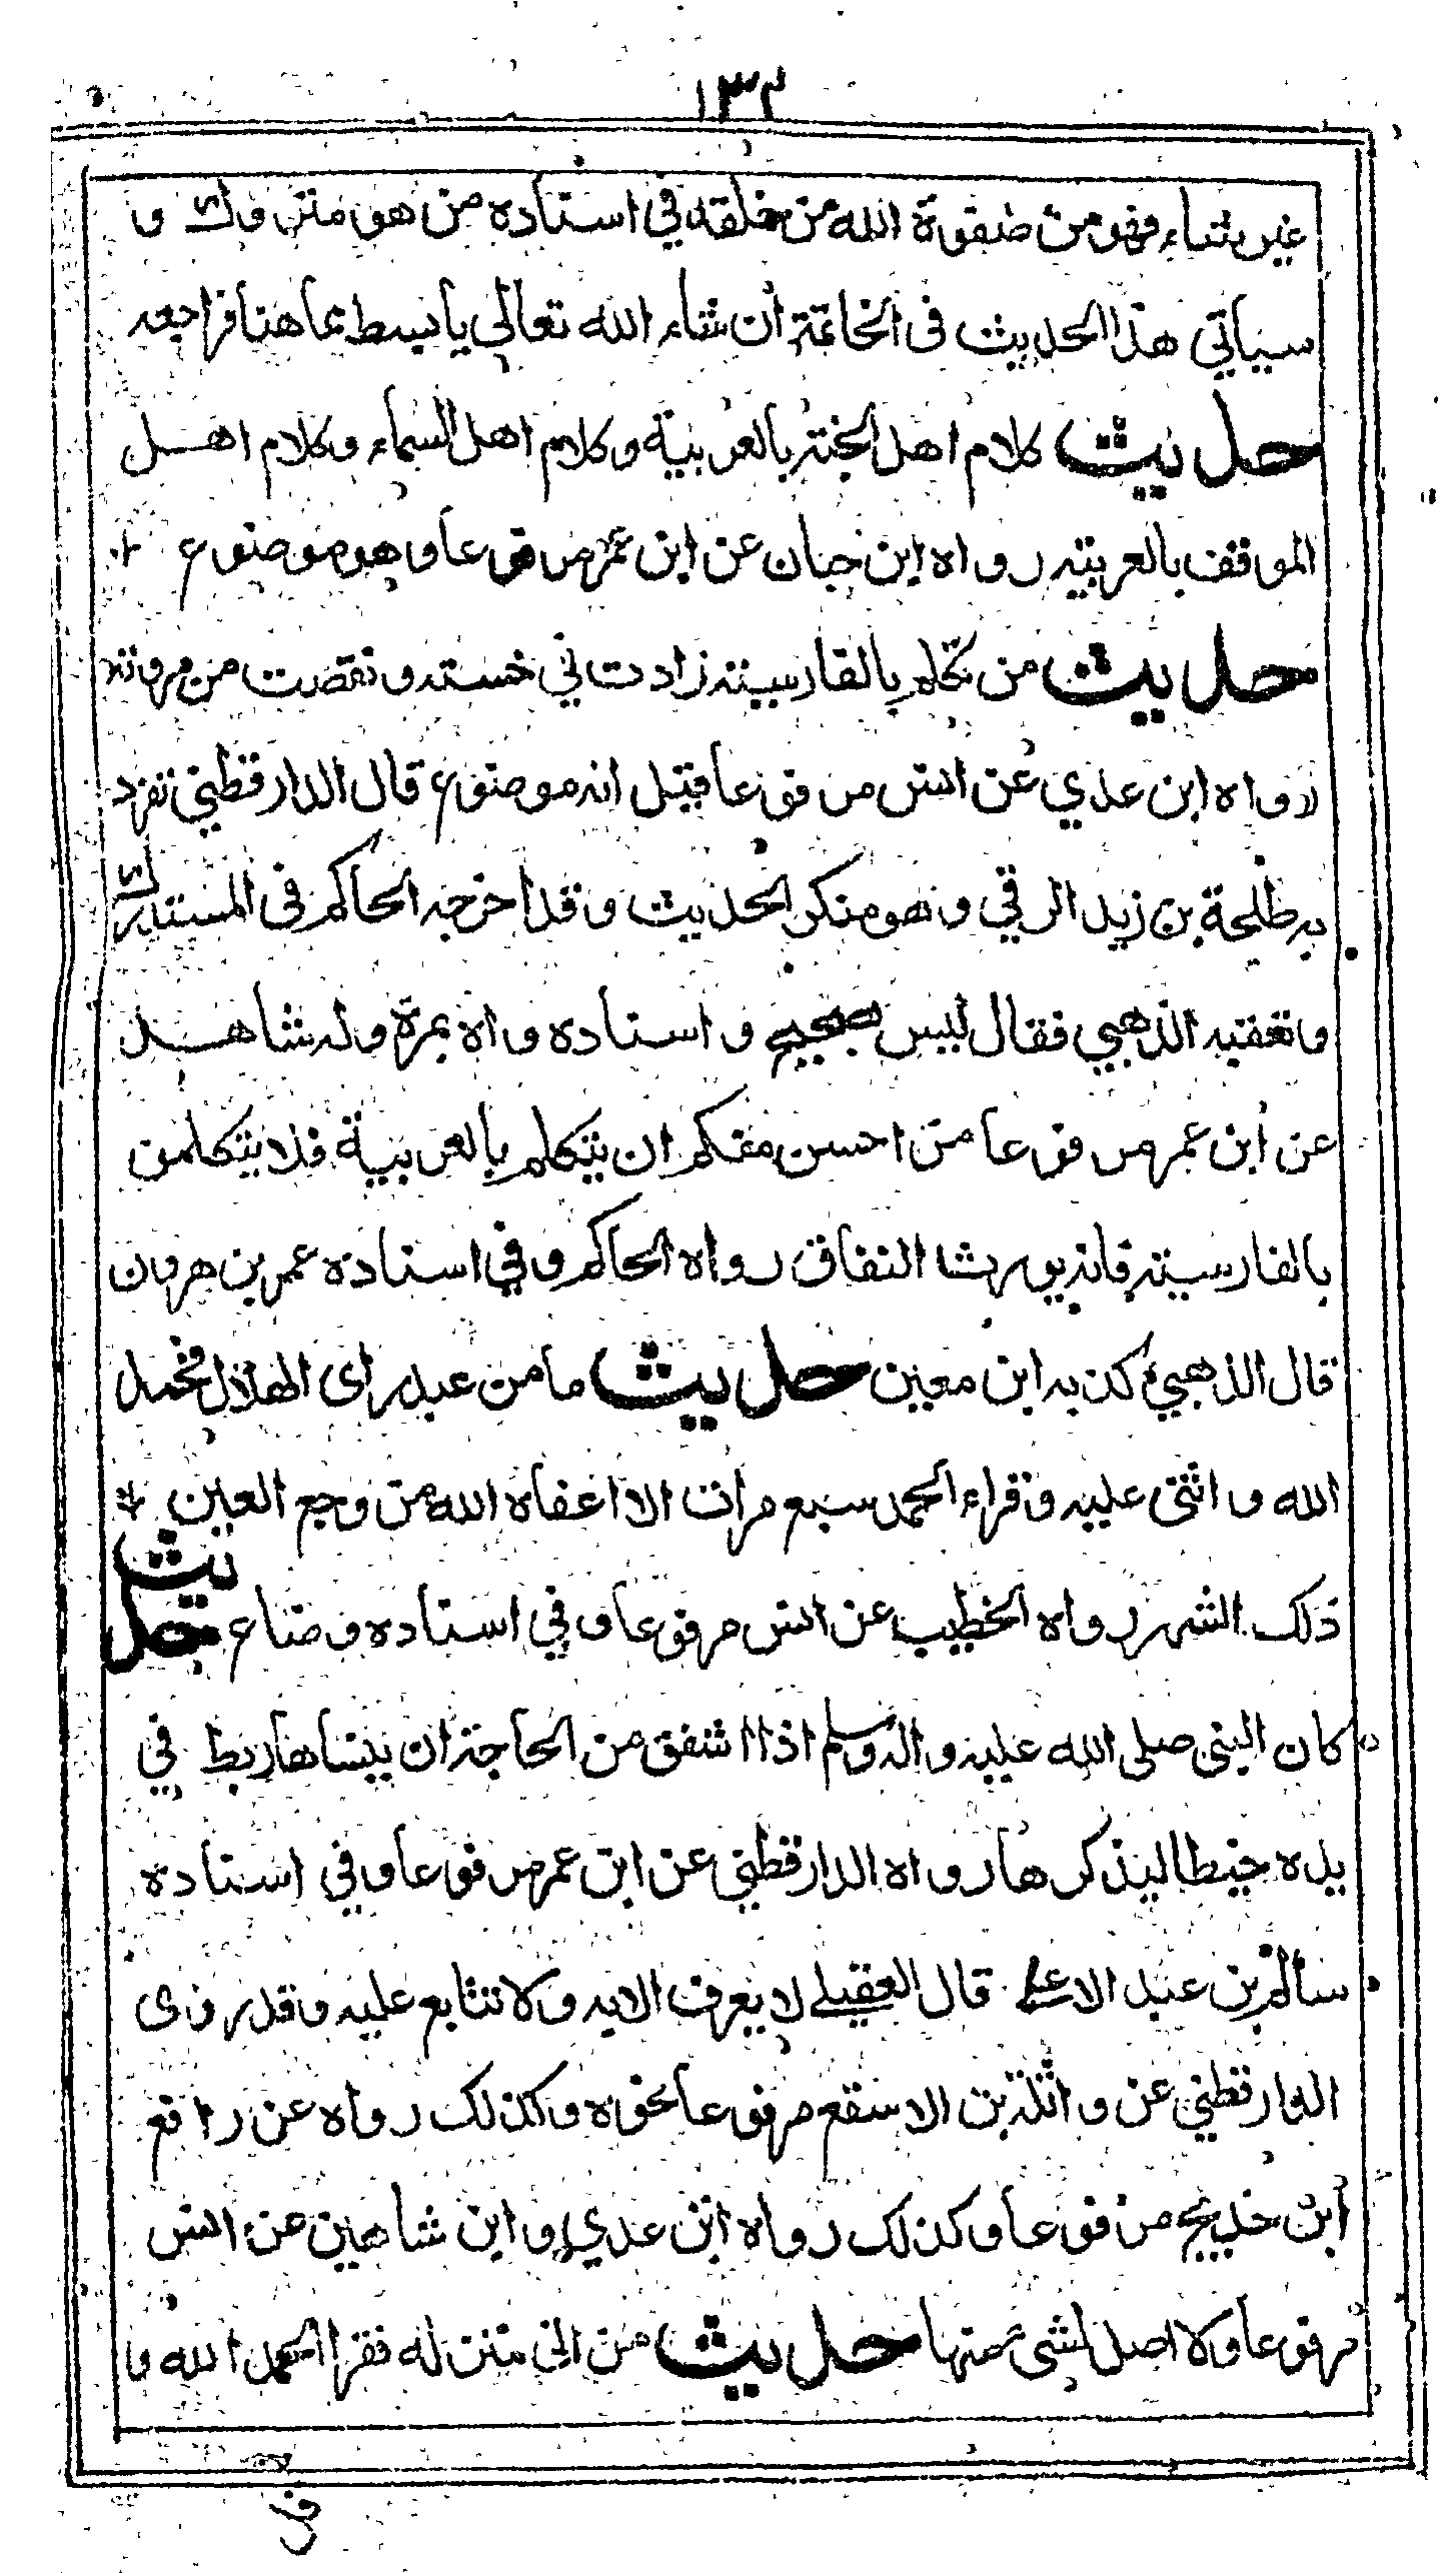 ١٣٢
غير بثناء فهو من صفوة الله من خلقه في اسناده من هو متروك و
سياتي هذا الحديث في الخاتمة ان شاء الله تعالي يابسط بما هنا فراجعه
حديث كلام اهل الجنة بالعربية وكلام اهل السماء وكلام اهل
الموقف بالعربية رواه ابن حبان عن ابن عمر مرفوعا وهو موضوع
حديث من تكلم بالفارسية زادت في خسته ونقصت من مروته
رواه ابن عدي عن انس مرفوعا قيل انه موضوع قال الدارقطني تفرد
به طلحة بن زيد الرقي وهو منكر الحديث وقد اخرجه الحاكم في المستدرك
وتعقبه الذهبي فقال ليس بصحيح واسناده واه بمرة وله شاهد
عن ابن عمر مرفوعا من احسن منكم ان يتكلم بالعربية فلا يتكلمن
بالفارسية فانه يورث النفاق رواه الحاكم وفي اسناده عمر بن هرون
قال الذهبي كذبه ابن معين حديث ما من عبد راى الهلال فحمد
الله واثنى عليه وقراء الحمد سبع مرات الا اعفاه الله من وجع العين
ذلك الشهر رواه الخطيب عن انس مرفوعا وفي اسناده وضاع حديث
كان النبي صلى الله عليه واله وسلم اذا اشفق من الحاجة ان ينساها ربط في
يده خيطا ليذكرها رواه الدارقطني عن ابن عمر مرفوعا وفي اسناده
سالم بن عبد الاعلى قال العقيلي لا يعرف الا به ولا يتابع عليه وقد روى
الدارقطني عن واثلة بن الاسقع مرفوعا نحوه وكذلك رواه عن رافع
ابن خديج مرفوعا وكذلك رواه ابن عدي وابن شاهين عن انس
مرفوعا ولا اصل لشى منها حديث من اتى منزله فقرا الحمد لله و